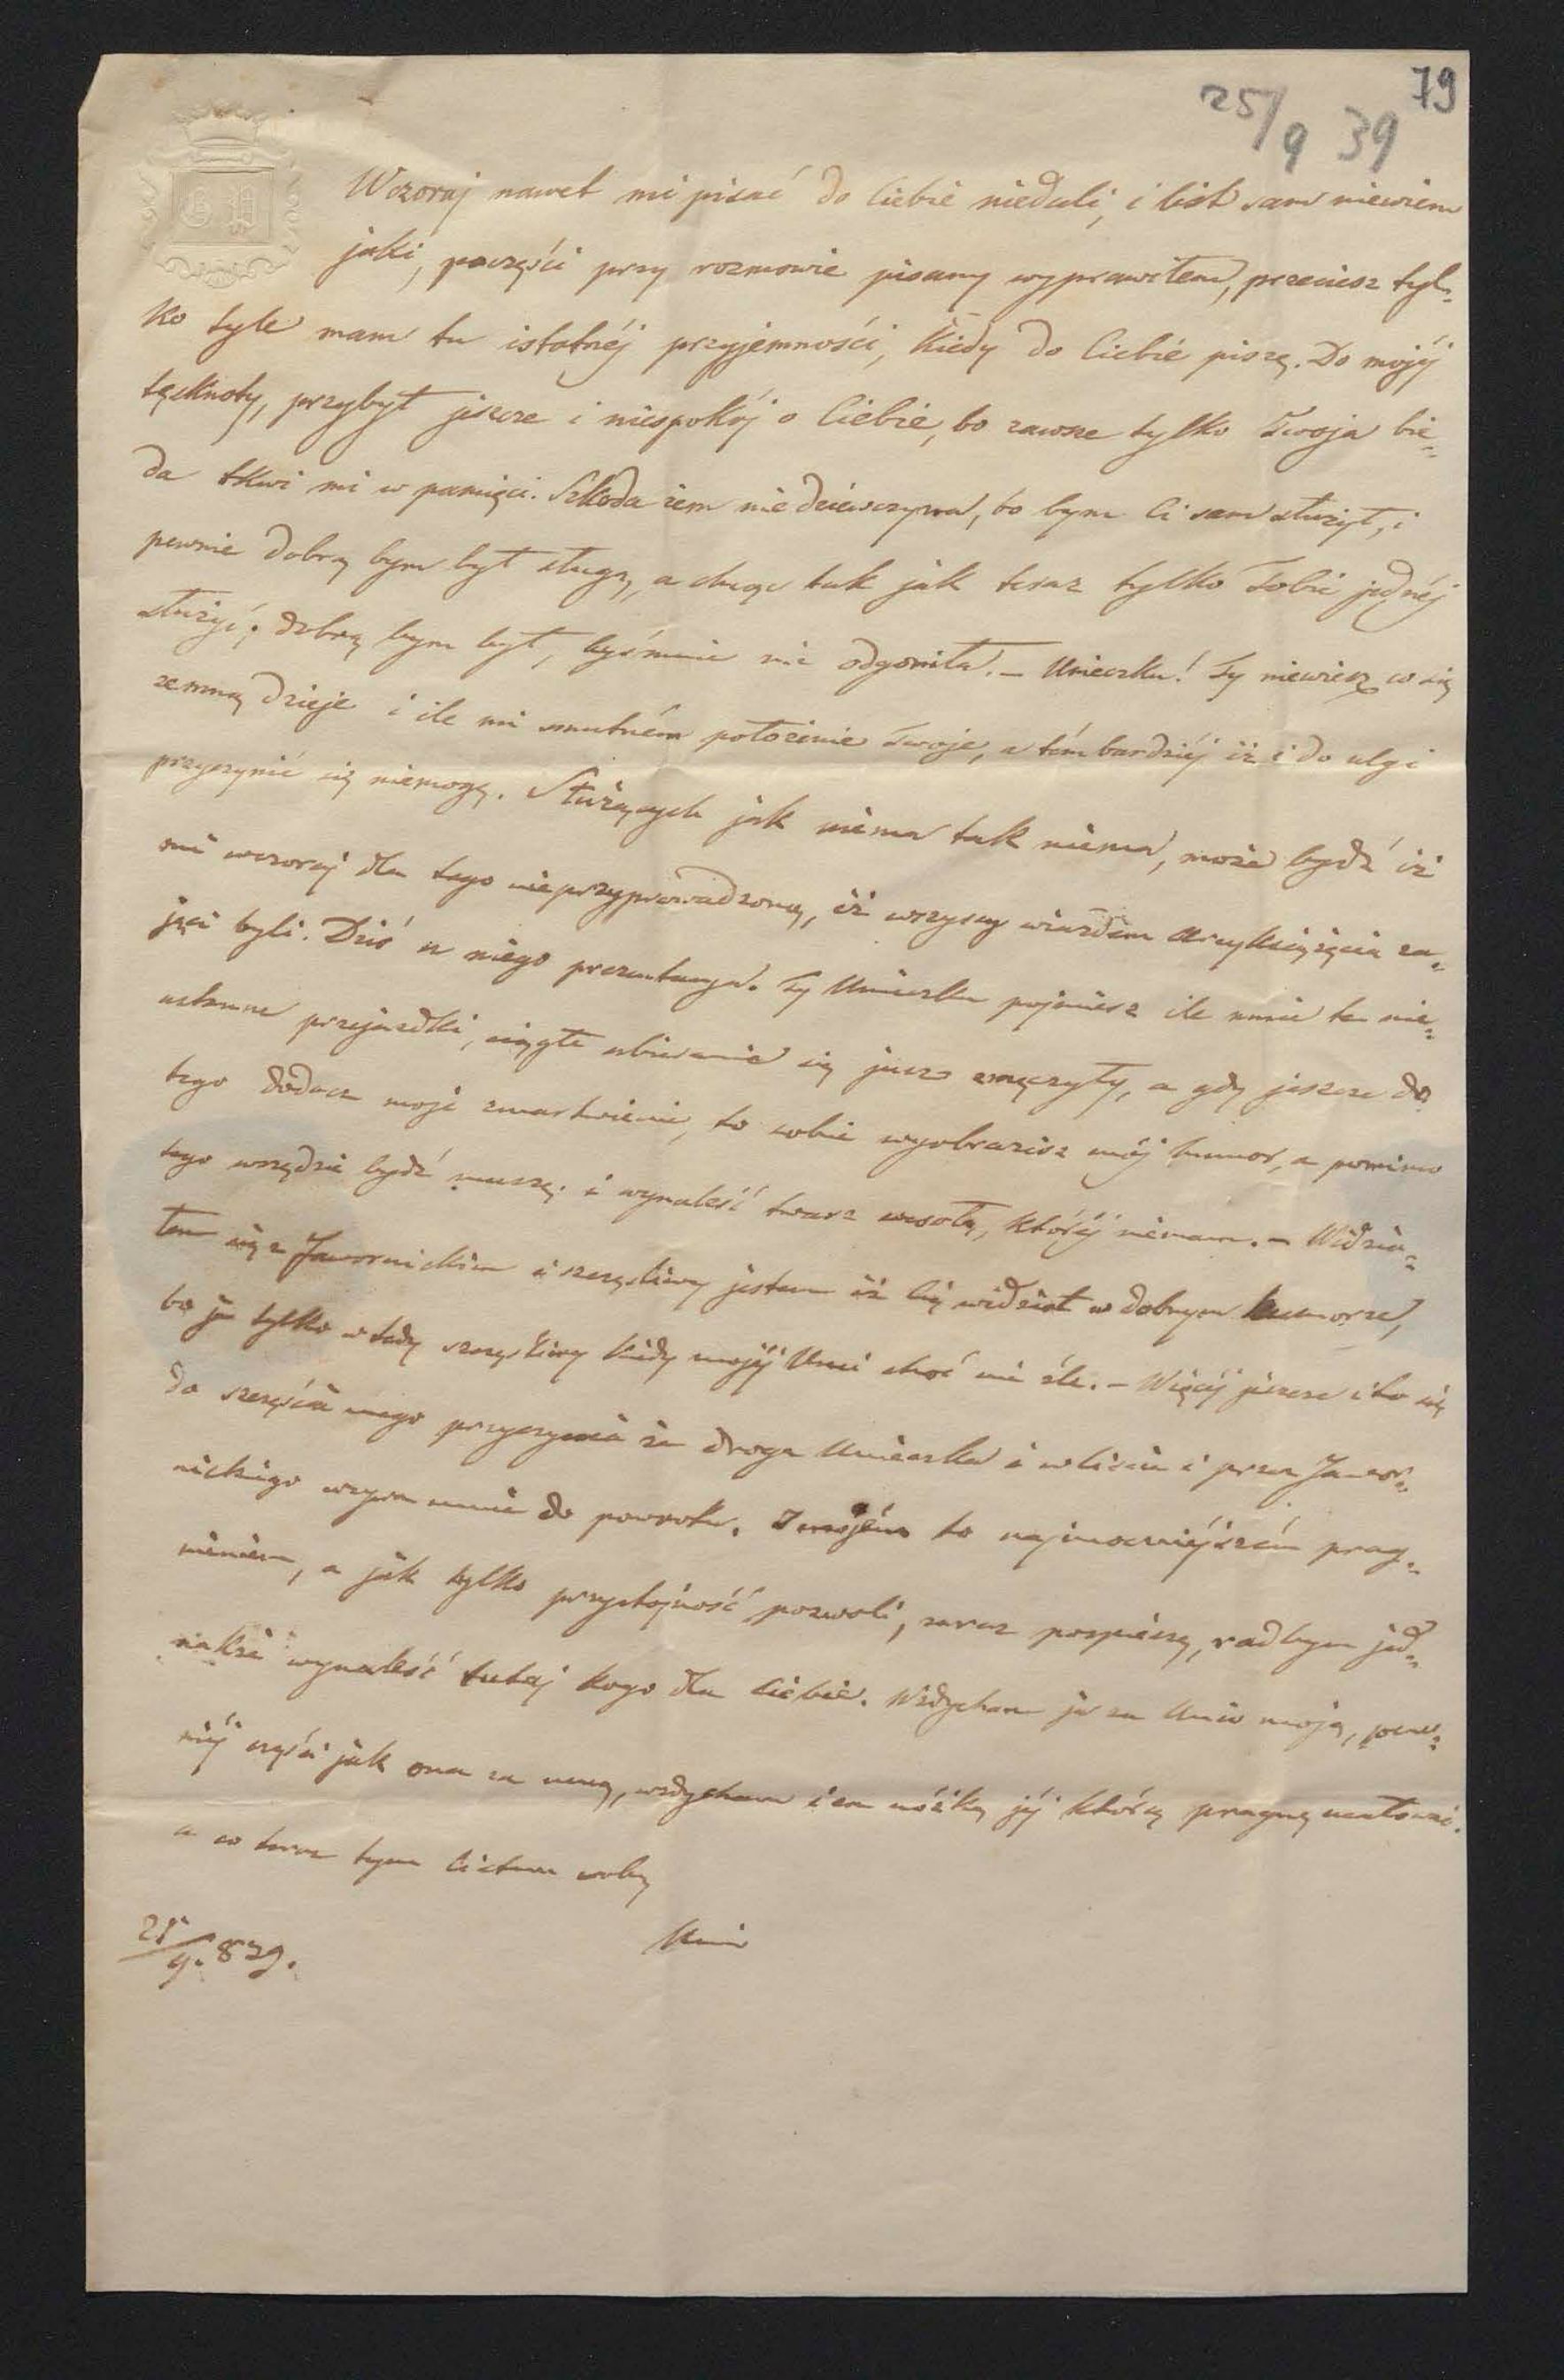 79
25/9 39
G P
Wczoraj nawet mi pisać do Ciebie niedali, i list sam niewiem
jaki, poczęści przy rozmowie pisany wyprawiłem, przeciesz tyl=
ko tyle mam tu istotnéj przyjemności, kiedy do Ciebie piszę. Do mojéj
tęsknoty, przybył jeszcze i niespokój o Ciebie, bo zawsze tylko Twoja bie=
da tkwi mi w pamięci. Szkoda żem nie dziewczyna, to bym Ci sam służył, i
pewnie dobrą bym był sługą, a chcąc tak jak teraz tylko Tobie jednéj
służyć; dobrą bym był, byś mnie nie odgoniła. – Unieczku! Ty niewiesz co się
zemną dzieje i ile mi smutném położenie Twoje, a tém bardziéj iż i do ulgi
przyczynić się niemogę. Służących jak niema tak niema, może bydź iż
mi wczoraj dla tego nieprzyprowadzono, iż wszyscy wiazdem Arcyksiążęcia za=
jęci byli. Dziś u niego prezentacya. Ty Unieczku pojmiesz ile mnie te nie=
ustanne przejażdki, ciągłe ubieranie się już zmęczyły, a gdy jeszcze do
tego dodasz moje zmartwienie, to sobie wyobrazisz mój humor, a pomimo
tego wszędzie bydź muszę, i wynaleść twarz wesołą, któréj niemam. – Widzia=
łem się z Jawornickim i szczęśliwy jestem iż Cię widział w dobrym humorze,
bo ja tylko wtedy szczęśliwy kiedy mojéj Uni choć nie źle. – Więcéj jeszcze i to się
do szczęścia mego przyczynia że droga Unieczka i w liście i przez Jawor=
nickiego wzywa mnie do powrotu. I mojém to najmocniéjszém prag=
nieniem, a jak tylko przystojność pozwoli, zaraz pospieszę, rad bym jed=
nakże wynaleść tutaj kogo dla Ciebie. Wzdycham ja za Unią moją, pew=
niéj części jak ona za mną, wzdycham i za nóżką jéj którą pragnę ucałować.
a co teraz tym listem robię
Unio
25/9. 839.